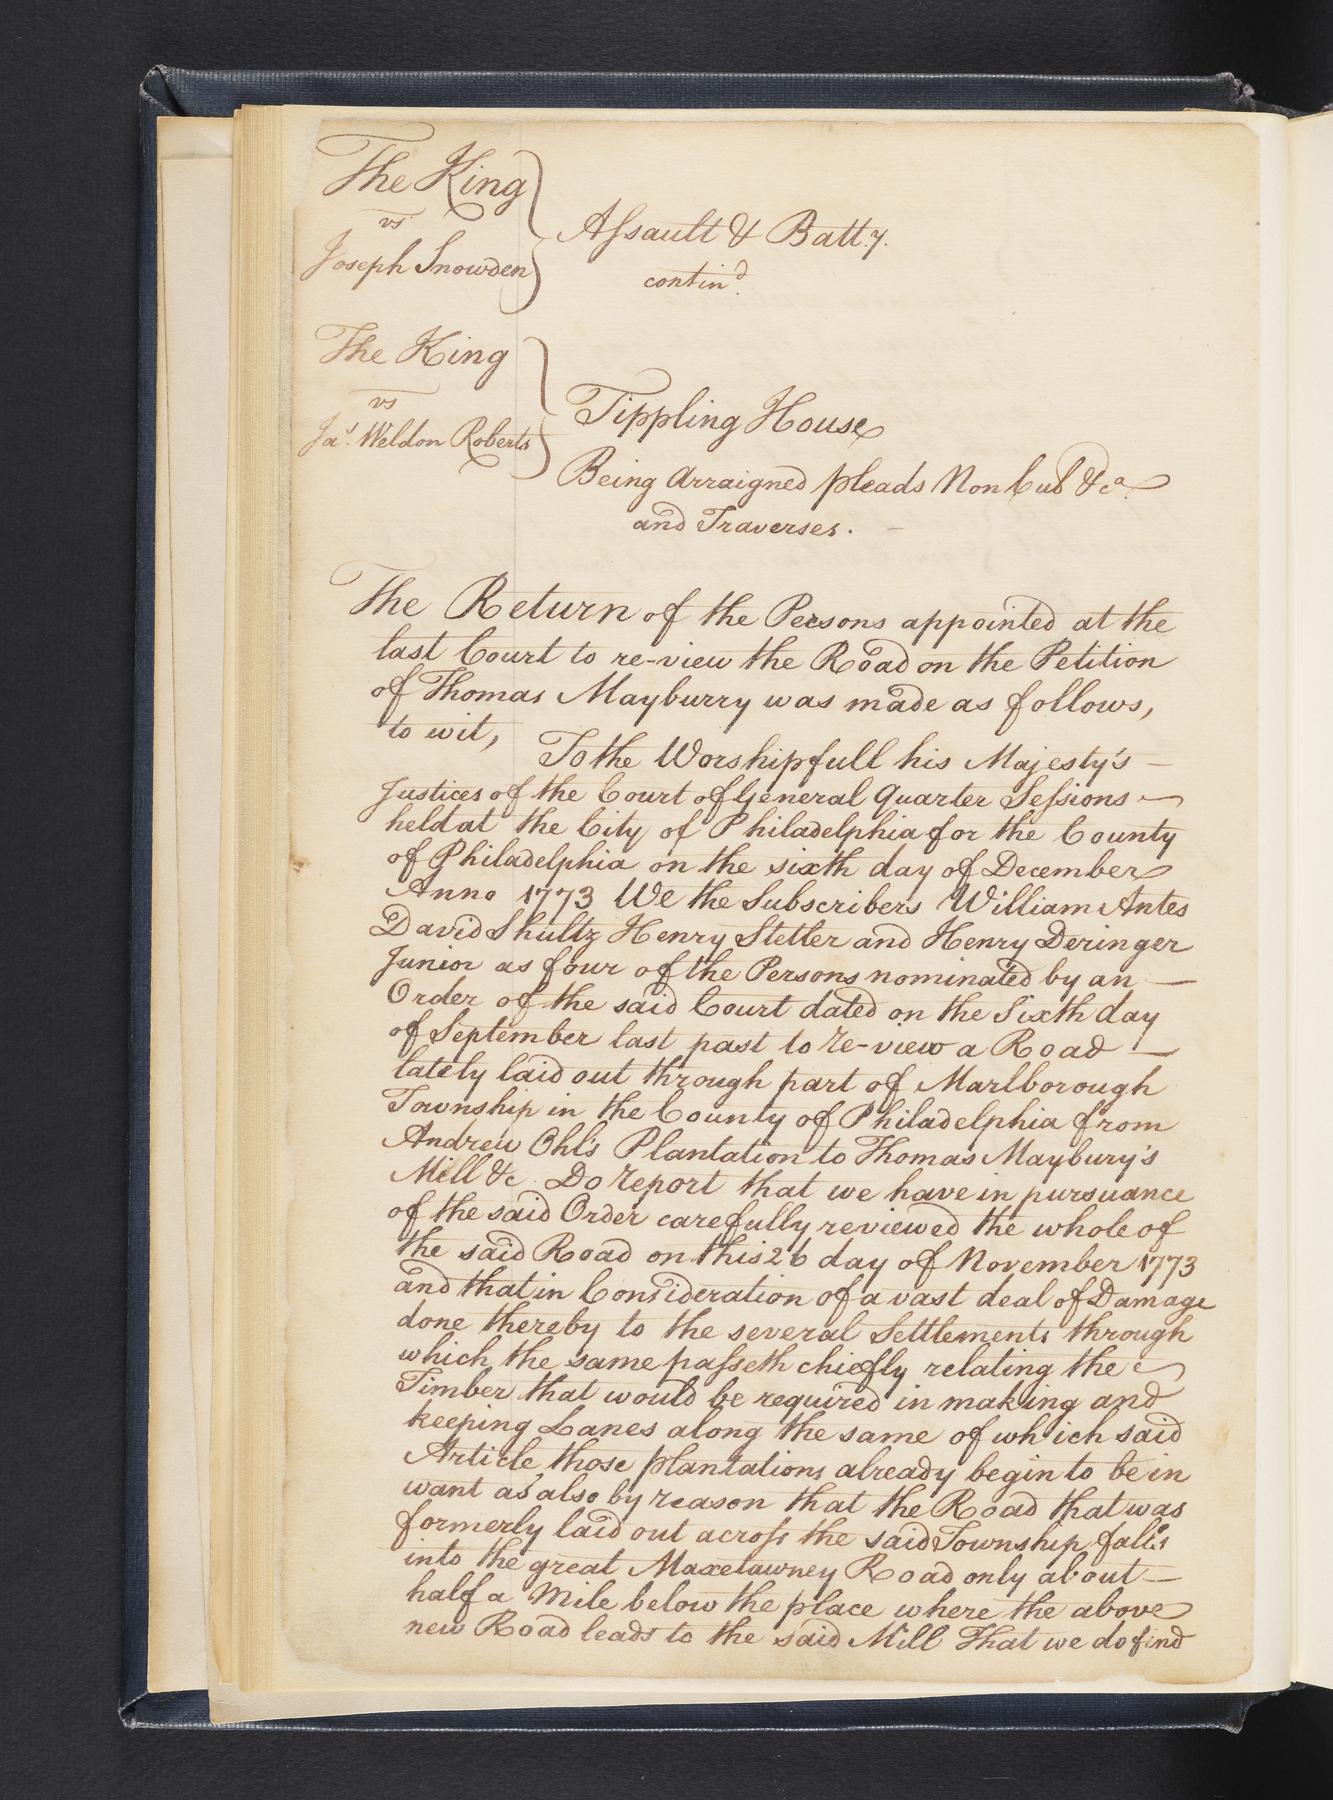 The King
vs
Joseph Snowden
Assault & Batt.y.
contin.d
The King
vs
Jas. Weldon Roberts
Tippling House
Being Arraigned pleads Non Cub &ca.
and Traverses.
The Return of the Persons appointed at the
last Court to re-view the Road on the Petition
of Thomas Mayburry was made as follows,
to wit,
To the Worshipfull his Majesty's —
Justices of the Court of General Quarter Sessions —
held at the City of Philadelphia for the County
of Philadelphia on the sixth day of December
Anno 1773 We the Subscribers William Antes
David Shultz Henry Stetler and Henry Deringer
Junior as four of the Persons nominated by an —
Order of the said Court dated on the Sixth day
of September last past to re-view a Road —
lately laid out through part of Marlborough
Township in the County of Philadelphia from
Andrew Ohl's Plantation to Thomas Maybury's
Mill &c Do report that we have in pursuance
of the said Order carefully reviewed the whole of
the said Road on this 26 day of November 1773
and that in Consideration of a vast deal of Damage
done thereby to the several Settlements through
which the same passeth chiefly relating the
Timber that would be required in making and
keeping Lanes along the same of which said
Article those plantations already begin to be in
want as also by reason that the Road that was
formerly laid out across the said Township falls
into the great Maxetawney Road only about —
half a Mile below the place where the above
new Road leads to the said Mill That we do find